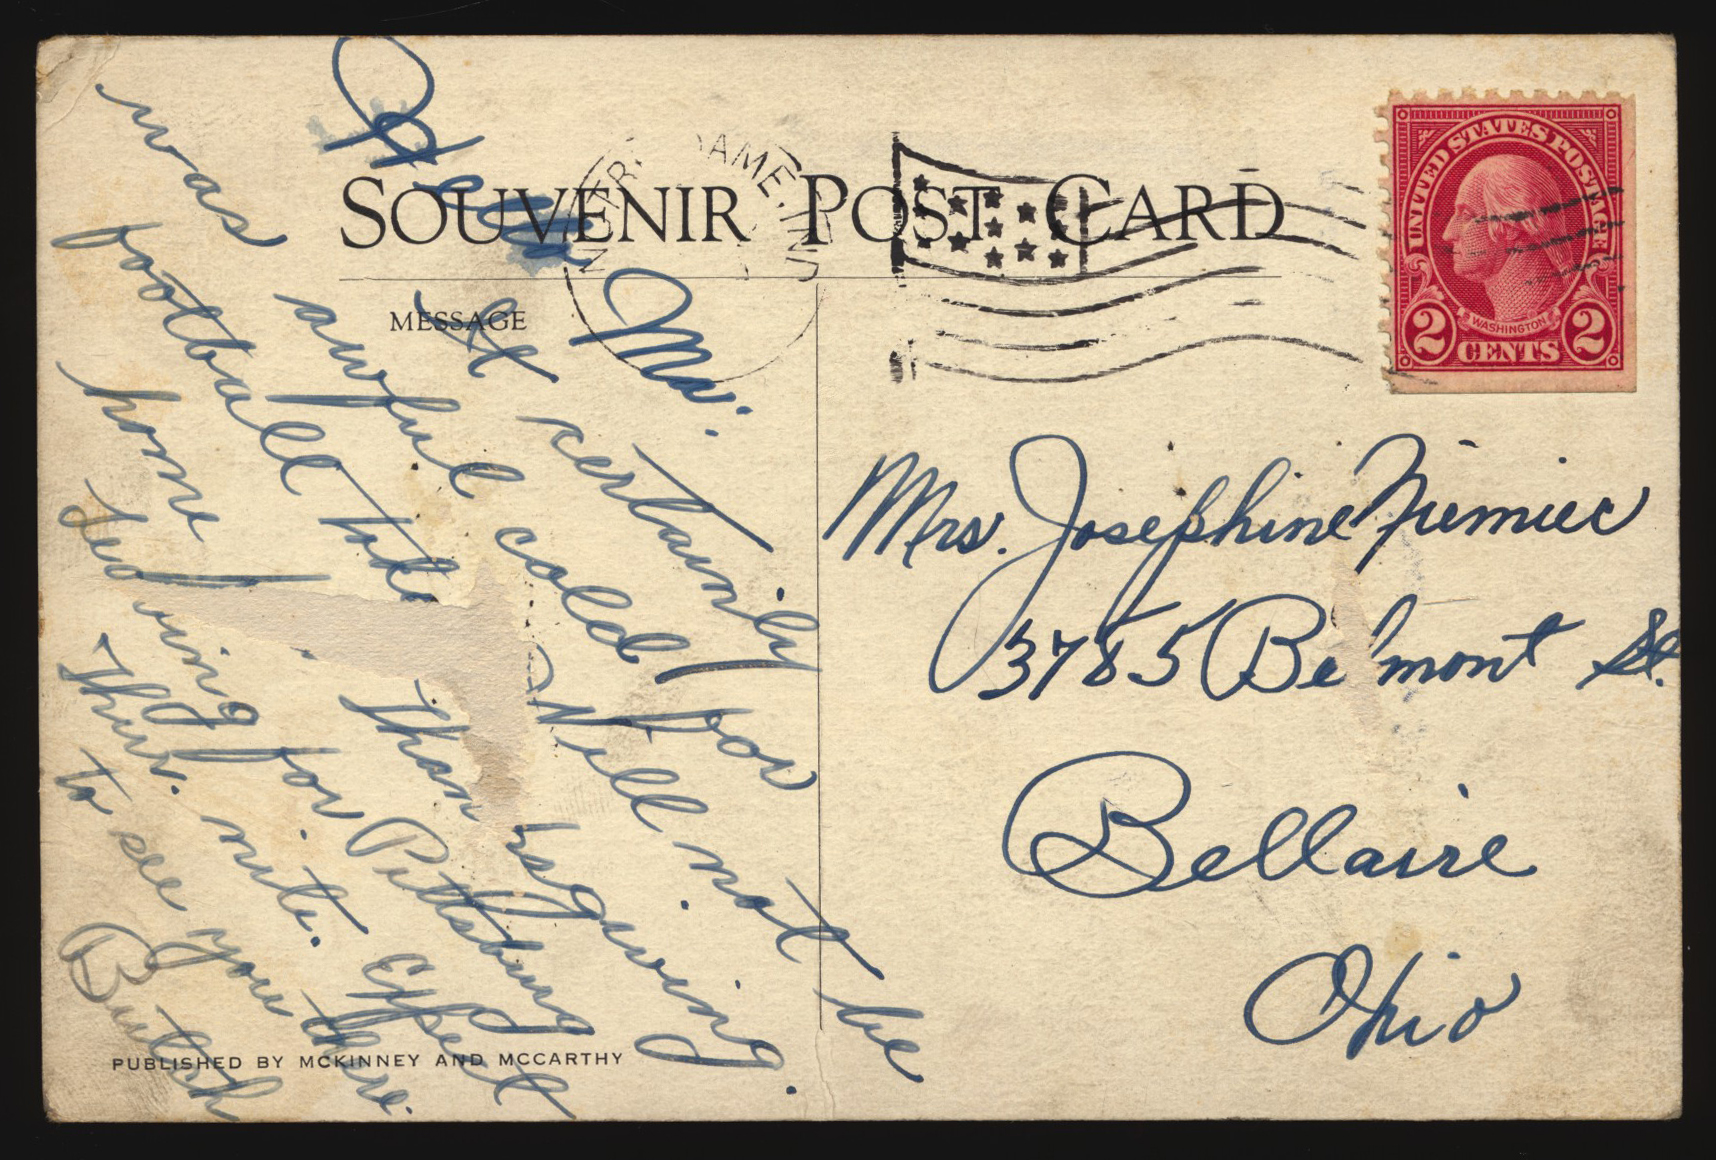 SOUVENIR POST CARD
DAME. IND
UNITED STATES POSTAGE
WASHINGTON
2 CENTS 2
MESSAGE
Hello Ma:
It certainly
was awful cold for
football Will not be
home Thanksgiving.
Leaving for Pittsburg
Thur. nite. Expect
to see you there.
Butch
Mrs. Josephine Niemiec
3785 Belmont St.
Bellaire
Ohio
PUBLISHED BY MCKINNEY AND MCCARTHY